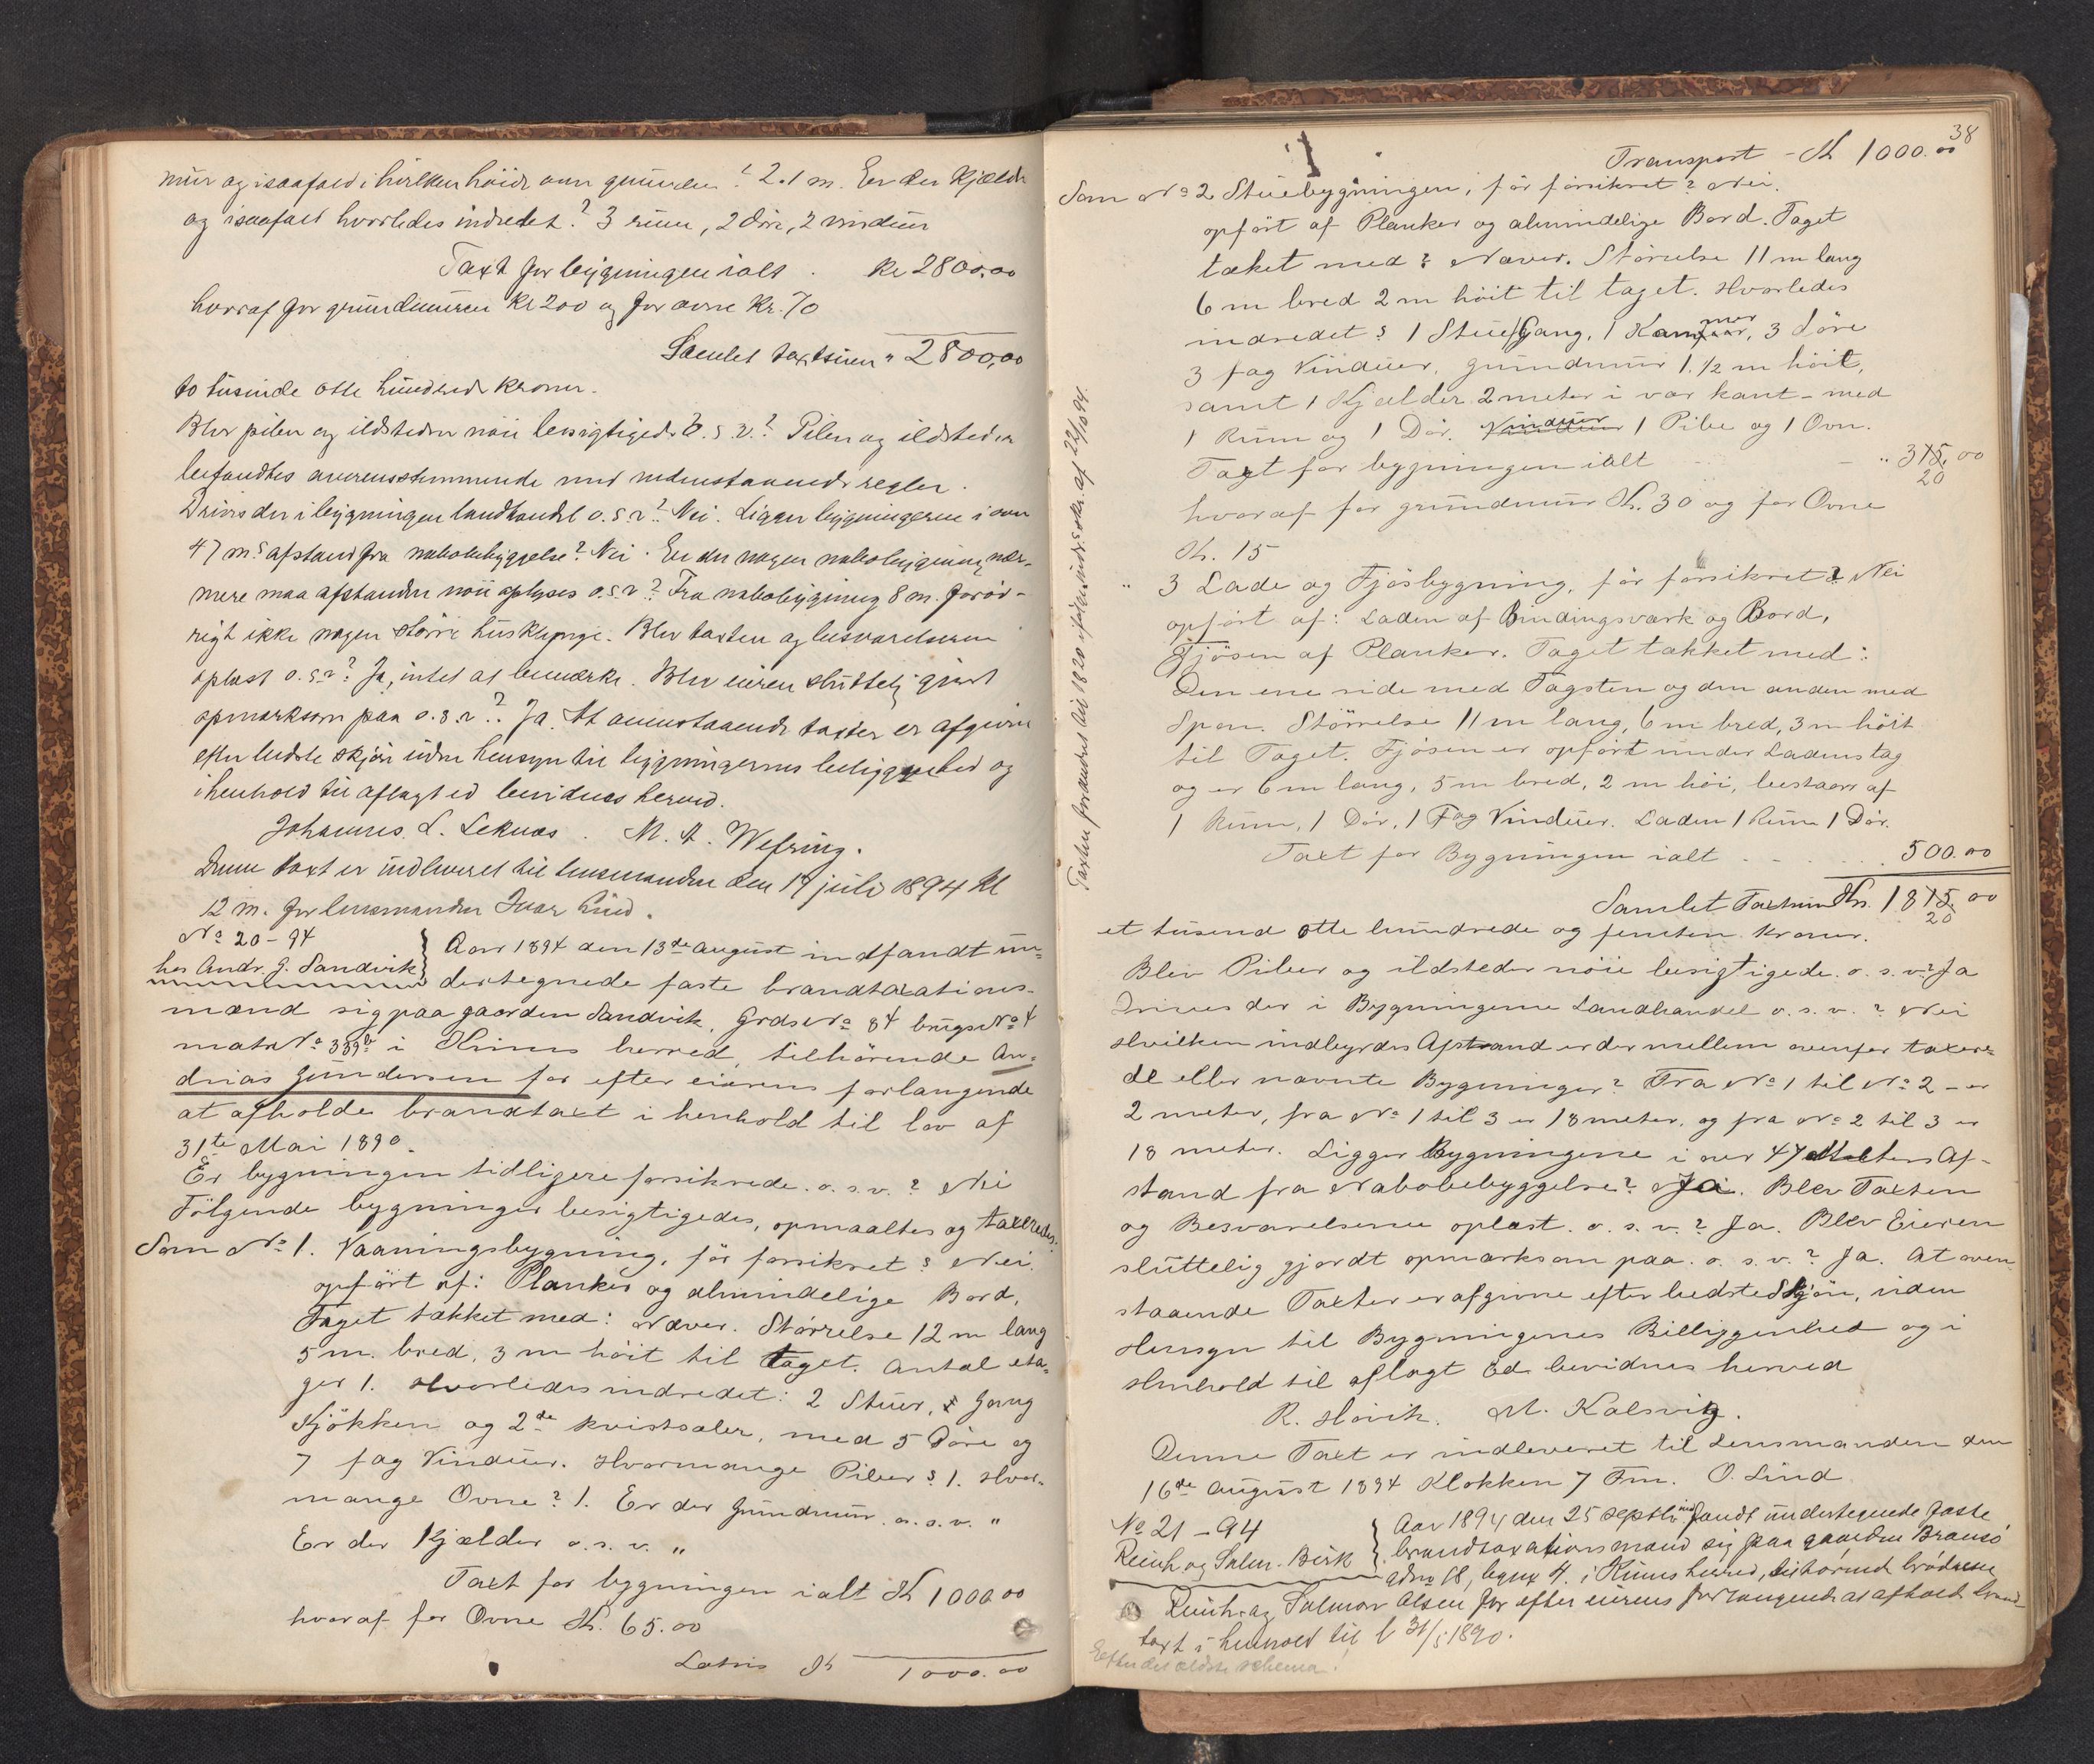 mur og isaafald i hvilken höide over grunden? 2.1 m. Er der Kjælder
og isaafald hvorledes indredet? 3 rum, 2 döre, 2 vinduer
Taxt for bygningen ialt . Kr 2800,00
hvoraf for grundmuren Kr 200 og for ovne Kr. 70
Samlet taxtsum " 2800,00
to tusinde otte hundrede kroner.
Blev piben og ildsteder nöie besigtigede o. s. v.? Piben og ildsteder
befandtes overensstemmende med nedenstaaende regler.
Drives der i bygningen landhandel o. s. v? Nei. Ligger bygningerne i over
47 m.s afstand fra nabobebyggelse? Nei. Er der nogen nabobygning nær-
mere maa afstanden nöie oplyses o. s. v? Fra nabobygning 8 m. foröv-
rigt ikke nogen större husklynge. Blev taxten og besvarelserne
oplæst o. s. v? Ja, intet at bemærke. Blev eieren sluttelig gjort
opmærksom paa o. s. v.? Ja. At ovenstaaende taxter er afgivne
efter bedste skjön uden hensyn til bygningernes beliggenhed og
i henhold til aflagt ed bevidnes herved.
Johannes. L. Leknæs . M. A. Wefring.
Denne taxt er indleveret til lensmanden den 17 juli 1894 Kl
12 m. for lensmanden Ivar Lind.
No 20-94
hos Andr. G. Sandvik
Aar 1894 den 13de August indfandt un-
dertegnede faste brandtaxations-
mænd sig paa gaarden Sandvik, Grds No 84 brugs No 4
matr No 339b i Kinns herred, tilhörende An-
drias Gundersen for efter eierens forlangende
at afholde brandtaxt i henhold til lov af
31te Mai 1890.
Er bygningen tidligere forsikrede. o. s. v. ? Nei
Fölgende bygninger besigtigedes, opmaaltes og taxeredes.
Som No 1. Vaaningsbygning, för forsikret ? Nei.
opfört af: Planker og almindelige Bord,
Taget tækket med: Næver. Störrelse 12 m lang
5 m. bred, 3 m höit til taget. Antal eta-
ger 1. Hvorledes indredet: 2 Stuer, 1 Gang
Kjökken og 2de kvistsaler, med 5 Döre og
7 fag Vinduer. Hvormange Piber ? 1. Hvor-
mange Ovne ? 1. Er der Grundmur o. s. v. "
Er der Kjælder o. s. v. "
Taxt for bygningen ialt Kr 1000.00
hvoraf for Ovne Kr. 65.00
Latris Kr 1000.00
38
Transport - Kr 1000.00
Som No 2 Stuebygningen, för forsikret ? Nei.
opfört af Planker og almindelige Bord. Taget
tækket med ? Næver. Störrelse 11 m lang
6 m bred 2 m höit til taget. Hvorledes
indredet ? 1 Stue, 1 Gang, 1 Kammer, 3 Döre
3 fag Vinduer, grundmur 1 1/2 m höit,
samt 1 Kjælder 2 meter i vær kant - med
1 Rum og 1 Dör. Vinduer 1 Pibe og 1 Ovn.
Taxt for bygningen ialt - " 315,00
20
hvoraf for grundmur Kr. 30 og for Ovne
Kr. 15
" 3 Lade og Fjösbygning, för forsikret ? Nei
opfört af: Laden af Bindingsværk og Bord,
Fjösen af Planker. Taget tækket med:
Den ene side med Tagsten og den anden med
Spon. Störrelse 11 m lang, 6 m bred, 3 m höit
til Taget. Fjösen er opfört under Ladens tag
og er 6 m lang, 5 m bred, 2 m höi, bestaar af
1 Rum, 1 Dör, 1 Fag Vinduer. Laden 1 Rum 1 Dör.
Taxt for Bygningen ialt . . . . 500.00
Samlet Taxtsum Kr. 1815.00
20
et tusend otte hundrede og femten kroner.
Blev Piber og ildsteder nöie besigtigede. o. s. v.? Ja
Drives der i Bygningerne Landhandel o. s. v. ? Nei
Hvilken indbyrdes Afstand er der mellem ovenfor taxere-
de eller nævnte Bygninger? Fra No 1 til No 2 - er
2 meter, fra No 1 til 3 er 18 meter, og fra No 2 til 3 er
18 meter. Ligger Bygningerne i over 47 Meters Af-
stand fra Nabobebyggelse? Ja. Blev Taxten
og Besvarelserne oplæst. o. s. v. ? Ja. Blev Eieren
sluttelig gjordt opmærksom paa. o. s. v. ? Ja. At oven-
staaende Taxter er afgivne efter bedste Skjön, uden
Hensyn til Bygningenes Billiggenhed og i
Henhold til aflagt Ed bevidnes herved
R. Hövik. M. Kalsvig.
Denne Taxt er indleveret til Lensmanden den
16de August 1894 Klokken 7 Fm. O. Lind
No 21-94
Reinh. og Salm. Birk
Aar 1894 den 25 septbr indfandt undertegnede faste
brandtaxationsmænd sig paa gaarden Bransö
gdno 18, bgnr 4. i Kinns herred, tilhörende brödrene
Reinh. og Salmon Olsen for efter eierens forlangende at afholde brand-
taxt i henhold til l 31/5 1890.
Efter det ældste schema!
Taxten forandret til 1820 ifölge indr.skr. af 22/10 94.